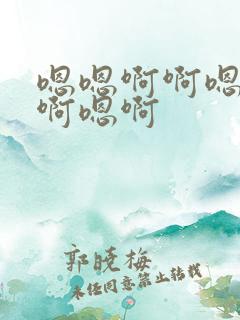 嗯嗯啊啊嗯
啊嗯啊
郭晓梅
未经同意禁止转载